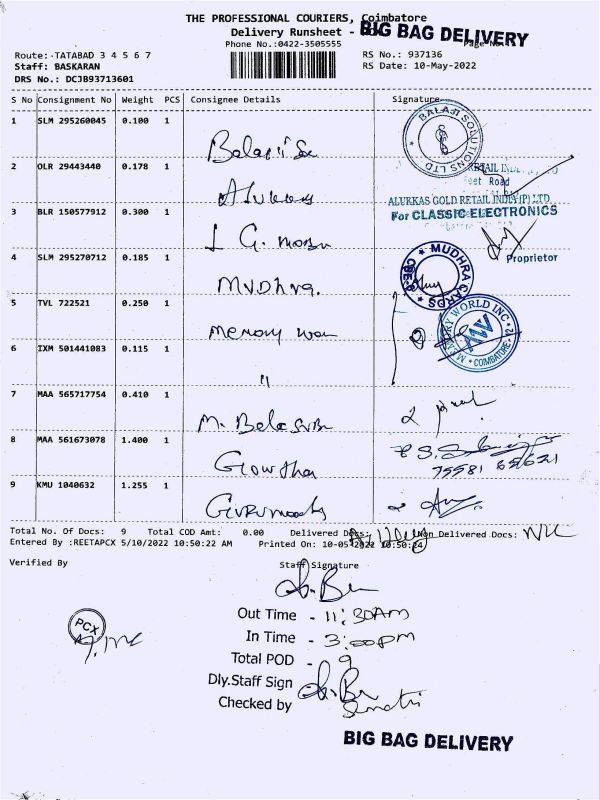 THE PROFESSIONAL COURIERS, Coimbatore
Delivery Runsheet -
BIG BAG DELIVERY
Phone No.:0422-3505555
Page No.
Route: TATABAD 3 4 5 6 7
RS No.: 937136
Staff: BASKARAN
RS Date: 10-May-2022
DRS No.: DCJB93713601
S No Consignment No Weight PCS Consignee Details Signature
1 SLM 295260045 0.100 1
BALAJI SOLUTIONS LTD
2 OLR 29443440 0.178 1
Alukkas
Feet Road
ALUKKAS GOLD RETAIL INDIA (P) LTD
3 BLR 150577912 0.300 1 For CLASSIC ELECTRONICS
L G.
Proprietor
4 SLM 295270712 0.185 1
MUDHRA CARDS CBE
Mudhra.
5 TVL 722521 0.250 1
MEMORY WORLD INC. MW COIMBATORE
memory
6 IXM 501441083 0.115 1
"
7 MAA 565717754 0.410 1
M.
8 MAA 561673078 1.400 1
Gowtham
75581 65621
9 KMU 1040632 1.255 1
Gurumoorthy
Total No. Of Docs: 9 Total COD Amt: 0.00 Delivered Docs: Non Delivered Docs: NIL
Entered By :REETAPCX 5/10/2022 10:50:22 AM Printed On: 10-05-2022 10:50:24
Verified By
Staff Signature
Out Time - 11:30AM
PCX
In Time - 3:00PM
Total POD - 9
Dly.Staff Sign
Checked by
BIG BAG DELIVERY